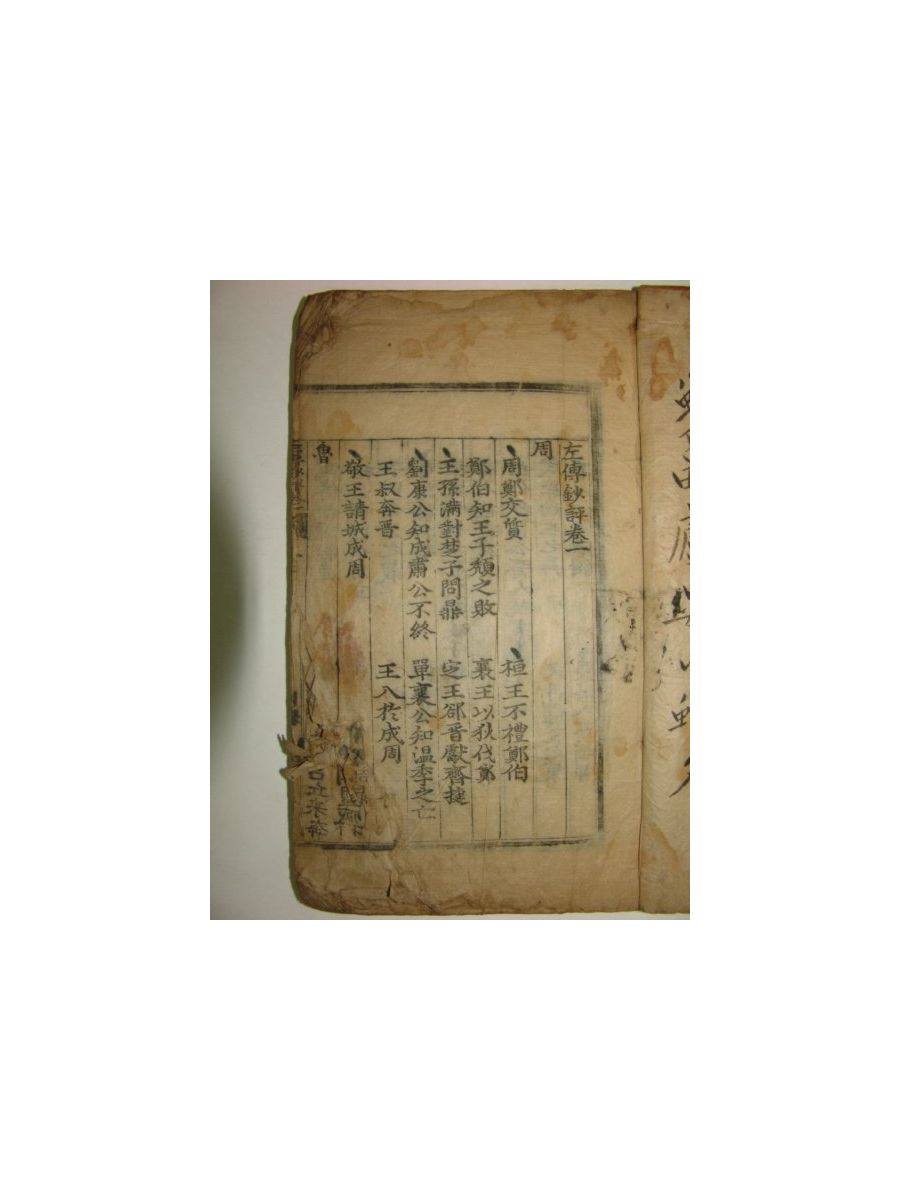 左傳鈔評卷一
周
周鄭交质 桓王不禮鄭伯
鄭伯知王子頹之敗 襄王以狄伐鄭
王孫滿對楚子問鼎 定王郤晋獻齊捷
劉康公知成肅公不終 單襄公知温季之亡
王叔奔晋 王入於成周
敬王請城成周
魯